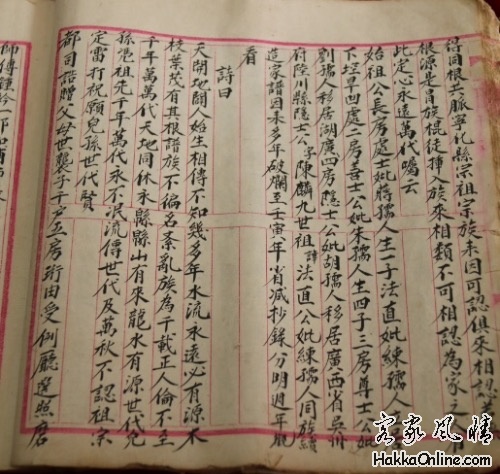 得同根共脈寧化縣宗祖宗族未因可認俱來相認
根源是胃族概徒揷入族來相類不可相認為家
此定心永遠萬代囑云
始祖公長房處士妣蔣孺人生一子法直妣練孺人
下坪早四處二房春士公妣朱孺人生四子三房尊士公妣
劉孺人移居湖廣四房隱士公妣胡孺人移居廣西省
府陸川縣隱士公字陳麟九世祖法直公妣練孺人同族續
造家譜因來多年破爛至壬寅年省減抄錄分明週年
看
詩曰
天開地闢人始生相傳不知幾多年水流永遠必有源木
枝葉茂有其根譜族不徧名紊亂族為干載正人倫不至
千年萬萬代天地同休永縣縣山有來龍水有源世代兒
孫憑祖先千年萬代永不泯流傳世代及萬秋不認祖宗
定雷打祝願兒孫世代賢
都司誥贈父母世襲子千戶五房珩由受例廳
師傅鍾
客家風情
HakkaOnline.com